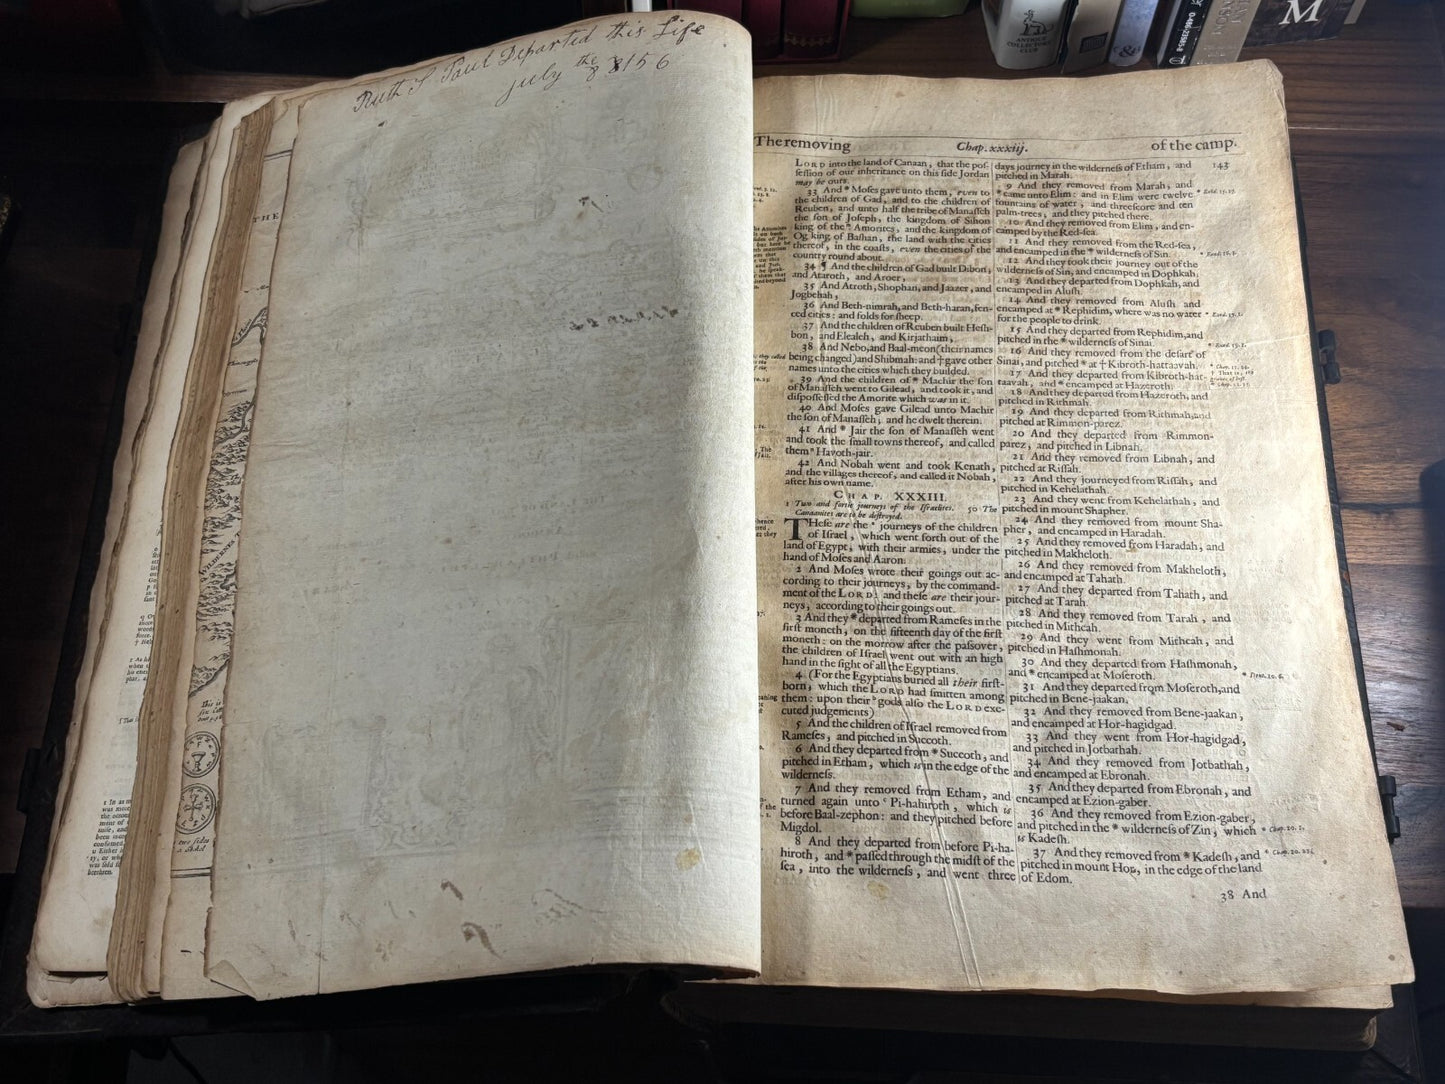 Ruth S Paul Departed this Life
july the 8 1856
THE
The removing
Chap. xxxiij.
of the camp.
143
LORD into the land of Canaan, that the pos-
ſeſſion of our inheritance on this ſide Jordan
may be ours.
33 And * Moſes gave unto them, even to
the children of Gad, and to the children of
Reuben, and unto half the tribe of Manaſſeh
the ſon of Joſeph, the kingdom of Sihon
king of the Amorites, and the kingdom of
Og king of Baſhan, the land with the cities
thereof, in the coaſts, even the cities of the
country round about.
34 ¶ And the children of Gad built Dibon,
and Ataroth, and Aroer,
35 And Atroth, Shophan, and Jaazer, and
Jogbehah,
36 And Beth-nimrah, and Beth-haran, fen-
ced cities: and folds for ſheep.
37 And the children of Reuben built Heſh-
bon, and Elealeh, and Kirjathaim,
38 And Nebo, and Baal-meon (their names
being changed) and Shibmah: and † gave other
names unto the cities which they builded.
39 And the children of * Machir the ſon
of Manaſſeh went to Gilead, and took it, and
diſpoſſeſſed the Amorite which was in it.
40 And Moſes gave Gilead unto Machir
the ſon of Manaſſeh; and he dwelt therein.
41 And * Jair the ſon of Manaſſeh went
and took the ſmall towns thereof, and called
them * Havoth-jair.
42 And Nobah went and took Kenath,
and the villages thereof, and called it Nobah,
after his own name.
CHAP. XXXIII.
1 Two and fortie journeys of the Iſraelites. 50 The
Canaanites are to be deſtroyed.
THeſe are the journeys of the children
of Iſrael, which went forth out of the
land of Egypt, with their armies, under the
hand of Moſes and Aaron.
2 And Moſes wrote their goings out ac-
cording to their journeys, by the command-
ment of the LORD: and theſe are their jour-
neys, according to their goings out.
3 And they * departed from Rameſes in the
firſt moneth, on the fifteenth day of the firſt
moneth: on the morrow after the paſſover,
the children of Iſrael went out with an high
hand in the ſight of all the Egyptians.
4 (For the Egyptians buried all their firſt-
born, which the LORD had ſmitten among
them: upon their gods alſo the LORD exe-
cuted judgements)
5 And the children of Iſrael removed from
Rameſes, and pitched in Succoth.
6 And they departed from * Succoth, and
pitched in Etham, which is in the edge of the
wilderneſs.
7 And they removed from Etham, and
turned again unto Pi-hahiroth, which is
before Baal-zephon: and they pitched before
Migdol.
8 And they departed from before Pi-ha-
hiroth, and * paſſed through the midſt of the
ſea, into the wilderneſs, and went three
days journey in the wilderneſs of Etham, and
pitched in Marah.
9 And they removed from Marah, and
* came unto Elim: and in Elim were twelve
fountains of water, and threeſcore and ten
palm-trees, and they pitched there.
10 And they removed from Elim, and en-
camped by the Red-ſea.
11 And they removed from the Red-ſea,
and encamped in the * wilderneſs of Sin.
12 And they took their journey out of the
wilderneſs of Sin, and encamped in Dophkah.
13 And they departed from Dophkah, and
encamped in Aluſh.
14 And they removed from Aluſh and
encamped at * Rephidim, where was no water
for the people to drink.
15 And they departed from Rephidim, and
pitched in the * wilderneſs of Sinai.
16 And they removed from the deſart of
Sinai, and pitched * at † Kibroth-hattaavah.
17 And they departed from Kibroth-hat-
taavah, and * encamped at Hazeroth.
18 And they departed from Hazeroth, and
pitched in Rithmah.
19 And they departed from Rithmah, and
pitched at Rimmon-parez.
20 And they departed from Rimmon-
parez, and pitched in Libnah.
21 And they removed from Libnah, and
pitched at Riſſah.
22 And they journeyed from Riſſah, and
pitched in Kehelathah.
23 And they went from Kehelathah, and
pitched in mount Shapher.
24 And they removed from mount Sha-
pher, and encamped in Haradah.
25 And they removed from Haradah, and
pitched in Makheloth.
26 And they removed from Makheloth,
and encamped at Tahath.
27 And they departed from Tahath, and
pitched at Tarah.
28 And they removed from Tarah, and
pitched in Mithcah.
29 And they went from Mithcah, and
pitched in Haſhmonah.
30 And they departed from Haſhmonah,
and * encamped at Moſeroth.
31 And they departed from Moſeroth, and
pitched in Bene-jaakan.
32 And they removed from Bene-jaakan,
and encamped at Hor-hagidgad.
33 And they went from Hor-hagidgad,
and pitched in Jotbathah.
34 And they removed from Jotbathah,
and encamped at Ebronah.
35 And they departed from Ebronah, and
encamped at Ezion-gaber.
36 And they removed from Ezion-gaber,
and pitched in the * wilderneſs of Zin, which
is Kadeſh.
37 And they removed from * Kadeſh, and
pitched in mount Hor, in the edge of the land
of Edom.
38 And
* Exod. 15. 27.
* Exod. 16. 1.
* Exod. 17. 1.
* Exod. 19. 1.
* Chap. 11. 34.
* Chap. 11. 35.
* Deut. 10. 6.
* Chap. 20. 1.
* Chap. 20. 22.
ANTIQUE
COLLECTORS
CLUB
M